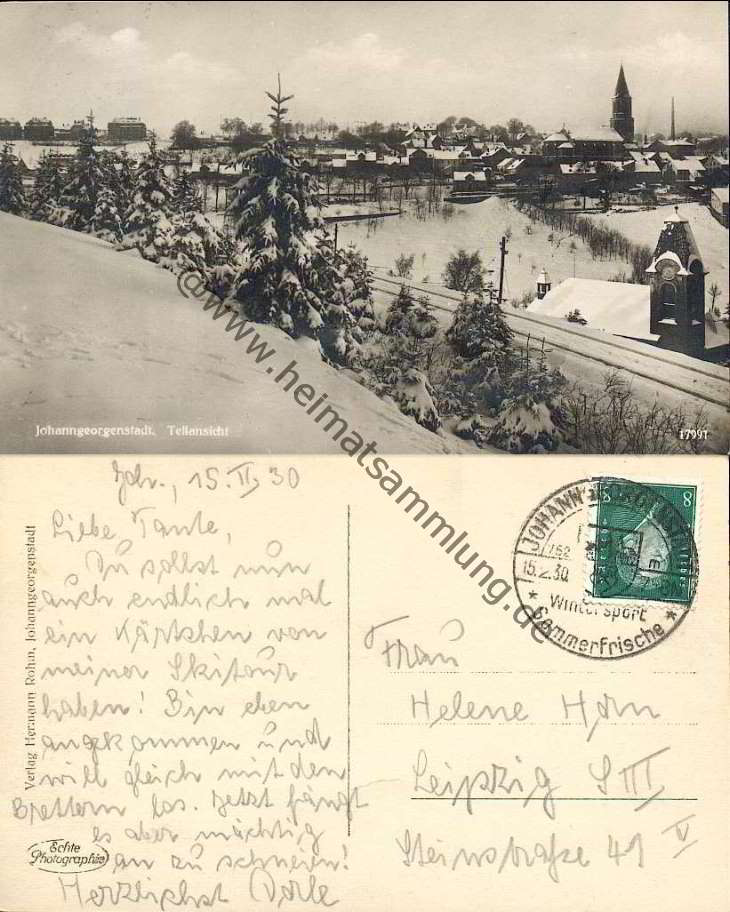 Johanngeorgenstadt. Teilansicht
17991
@www.heimatsammlung.de
15. II. 30
Liebe Tante,
Du sollst nun
auch endlich mal
ein Kärtchen von
meiner Skitour
haben! Bin eben
angekommen und
will gleich mit den
Brettern los. Jetzt fängt
es aber mächtig
an zu schneien!
Herzlichst Dorle
Verlag Hermann Rohm, Johanngeorgenstadt
Echte
Photographie
JOHANNGEORGENSTADT
15.2.30
* Wintersport *
Sommerfrische
8 8
Frau
Helene Horn
Leipzig S III
Steinstraße 49 V